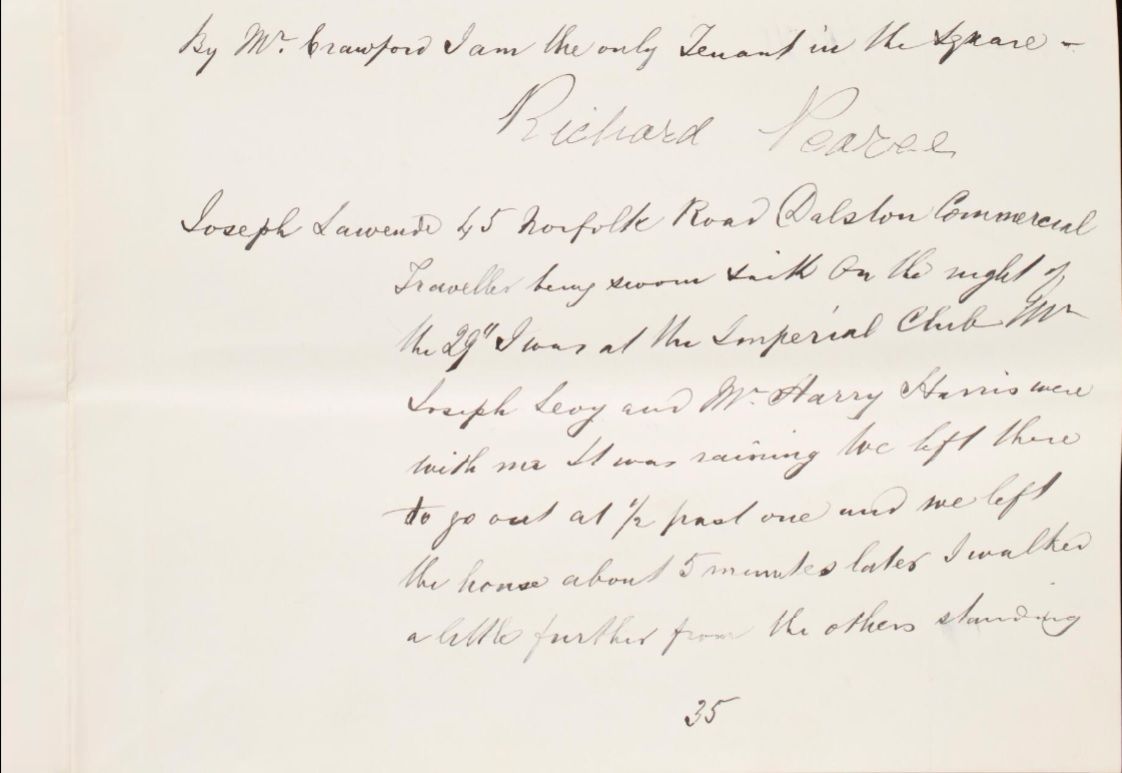 By Mr. Crawford I am the only Tenant in the square –
Richard Pearce
Joseph Lawende 45 Norfolk Road Dalston Commercial
Traveller being sworn saith On the night of
the 29" I was at the Imperial Club Mr
Joseph Levy and Mr. Harry Harris were
with me It was raining We left there
to go out at 1/2 past one and we left
the house about 5 minutes later I walked
a little further from the others standing
35